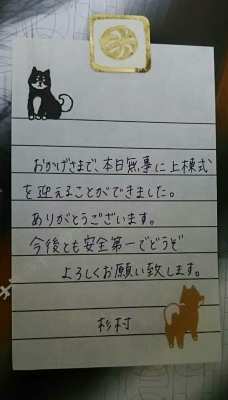 おかげさまで、本日無事に上棟式
を迎えることができました。
ありがとうございます。
今後とも安全第一でどうぞ
よろしくお願い致します。
杉村